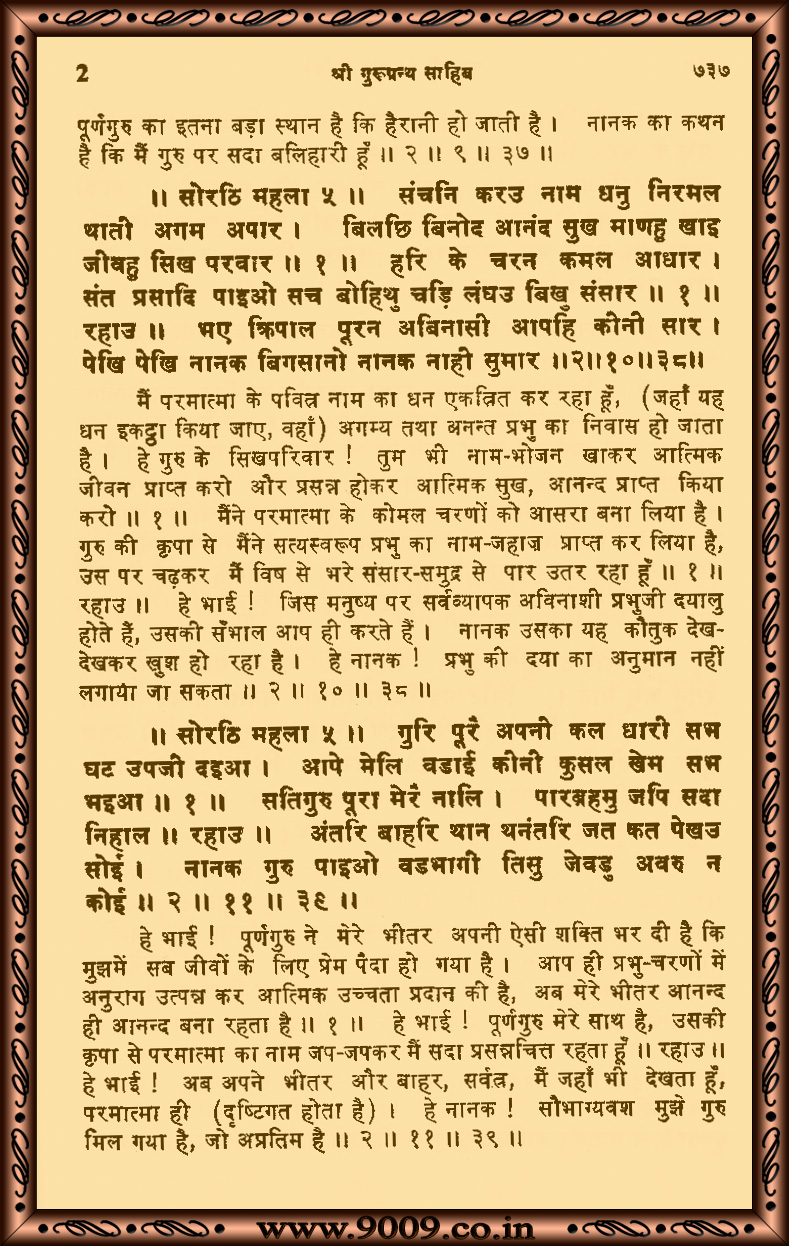 2 श्री गुरूग्रन्थ साहिब ७३७
पूर्णगुरु का इतना बड़ा स्थान है कि हैरानी हो जाती है । नानक का कथन
है कि मैं गुरु पर सदा बलिहारी हूँ ॥ २ ॥ ९ ॥ ३७ ॥
॥ सोरठि महला ५ ॥ संचनि करउ नाम धनु निरमल
थाती अगम अपार । बिलछि बिनोद आनंद सुख माणहु खाइ
जीवहु सिख परवार ॥ १ ॥ हरि के चरन कमल आधार ।
संत प्रसादि पाइओ सच बोहिथु चड़ि लंघउ बिखु संसार ॥ १ ॥
रहाउ ॥ भए क्रिपाल पूरन अबिनासी आपहि कीनी सार ।
पेखि पेखि नानक बिगसानो नानक नाही सुमार ॥२॥१०॥३८॥
मैं परमात्मा के पवित्र नाम का धन एकत्रित कर रहा हूँ, (जहाँ यह
धन इकट्ठा किया जाए, वहाँ) अगम्य तथा अनन्त प्रभु का निवास हो जाता
है । हे गुरु के सिखपरिवार ! तुम भी नाम-भोजन खाकर आत्मिक
जीवन प्राप्त करो और प्रसन्न होकर आत्मिक सुख, आनन्द प्राप्त किया
करो ॥ १ ॥ मैंने परमात्मा के कोमल चरणों को आसरा बना लिया है ।
गुरु की कृपा से मैंने सत्यस्वरूप प्रभु का नाम-जहाज प्राप्त कर लिया है,
उस पर चढ़कर मैं विष से भरे संसार-समुद्र से पार उतर रहा हूँ ॥ १ ॥
रहाउ ॥ हे भाई ! जिस मनुष्य पर सर्वव्यापक अविनाशी प्रभुजी दयालु
होते हैं, उसकी सँभाल आप ही करते हैं । नानक उसका यह कौतुक देख-
देखकर खुश हो रहा है । हे नानक ! प्रभु की दया का अनुमान नहीं
लगाया जा सकता ॥ २ ॥ १० ॥ ३८ ॥
॥ सोरठि महला ५ ॥ गुरि पूरै अपनी कल धारी सभ
घट उपजी दइआ । आपे मेलि वडाई कीनी कुसल खेम सभ
भइआ ॥ १ ॥ सतिगुरु पूरा मेरै नालि । पारब्रहमु जपि सदा
निहाल ॥ रहाउ ॥ अंतरि बाहरि थान थनंतरि जत कत पेखउ
सोई । नानक गुरु पाइओ वडभागी तिसु जेवडु अवरु न
कोई ॥ २ ॥ ११ ॥ ३९ ॥
हे भाई ! पूर्णगुरु ने मेरे भीतर अपनी ऐसी शक्ति भर दी है कि
मुझमें सब जीवों के लिए प्रेम पैदा हो गया है । आप ही प्रभु-चरणों में
अनुराग उत्पन्न कर आत्मिक उच्चता प्रदान की है, अब मेरे भीतर आनन्द
ही आनन्द बना रहता है ॥ १ ॥ हे भाई ! पूर्णगुरु मेरे साथ है, उसकी
कृपा से परमात्मा का नाम जप-जपकर मैं सदा प्रसन्नचित्त रहता हूँ ॥ रहाउ ॥
हे भाई ! अब अपने भीतर और बाहर, सर्वत्र, मैं जहाँ भी देखता हूँ,
परमात्मा ही (दृष्टिगत होता है) । हे नानक ! सौभाग्यवश मुझे गुरु
मिल गया है, जो अप्रतिम है ॥ २ ॥ ११ ॥ ३९ ॥
www.9009.co.in